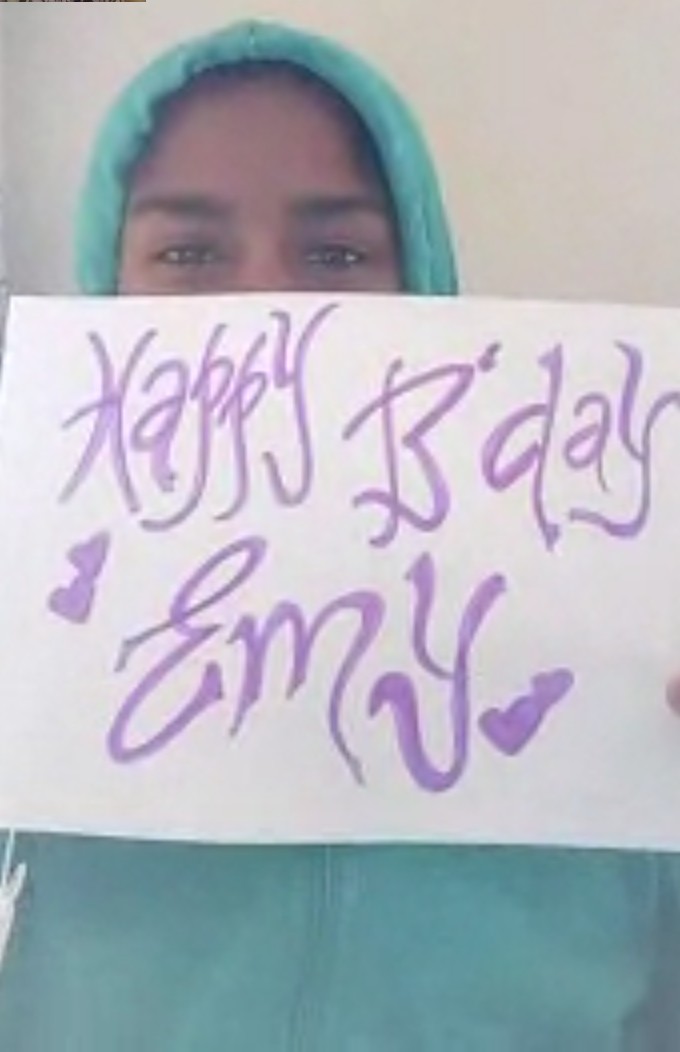 Happy B'day
Emy